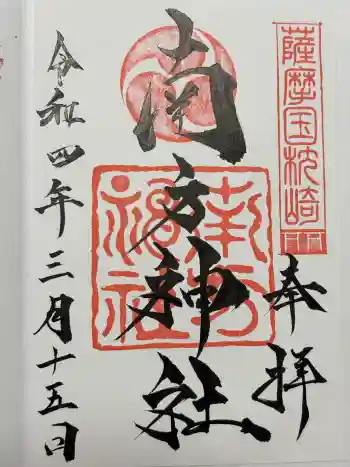 薩摩国枕崎
奉拝
南方神社
令和四年三月十五日